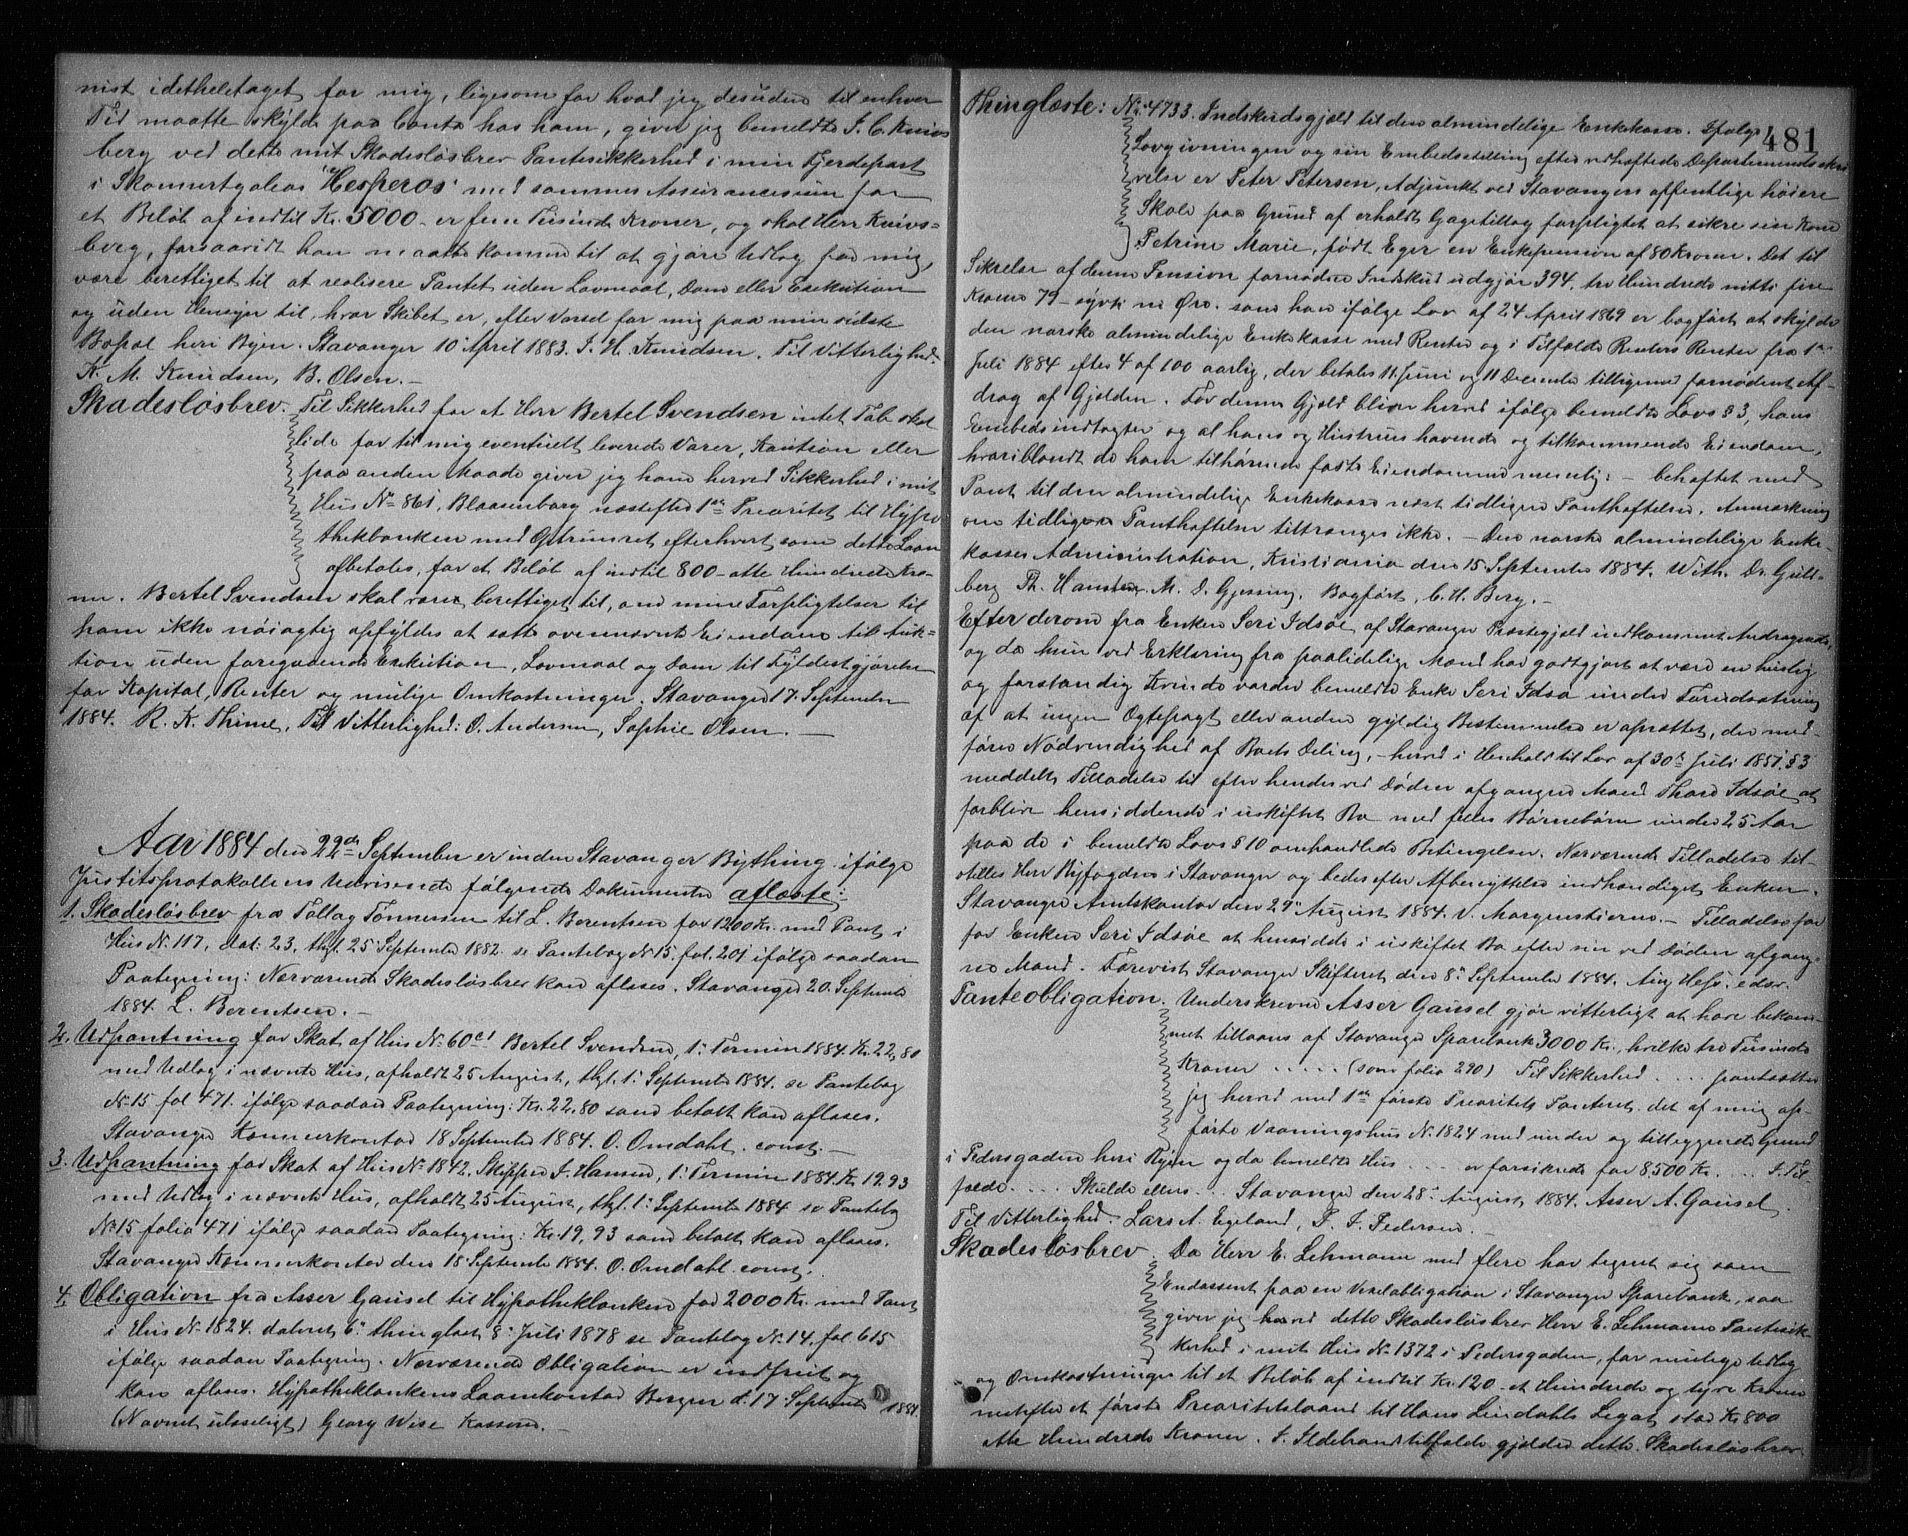 nist idetheletaget for mig, ligesom for hvad jeg desuden til enhver
Tid maatte skylde paa Conto hos ham, giver jeg bemeldte J. C. Knivs
berg ved dette mit Skadesløsbrev Pantesikkerhed i min Fjerdepart
i Skonnertgaleas "Hesperos" med sammes Assurancesum for
et Beløb af indtil Kr. 5000 - er fem Tusinde Kroner, og skal Herr Knivs=
berg, forsaavidt han maatte komme til at gjøre Udlæg for mig,
være berettiget til at realisere Pantet uden Lovmaal, Dom eller Exekution
og uden Hensyn til, hvor Skibet er, efter Varsel for mig paa min sidste
Bopæl heri Byen. Stavanger 10 April 1883. J. H. Knudsen. Til Vitterlighed:
K. M. Knudsen, B. Olsen. -
Skadesløsbrev. Til Sikkerhed for at Herr Bertel Svendsen intet Tab skal
lide for til mig eventuelt leverede Varer, Kaution eller
paa anden Maade giver jeg ham herved Sikkerhed i mit
Hus No 861, Blaasenborg næstefter 1ste Prioritet til Hypo
thekbanken med Optrinsret efterhvert som dette Laan
afbetales, for et Beløb af indtil 800 - otte Hundrede Kro-
ner. Bertel Svendsen skal være berettiget til, om mine Forpligtelser til
ham ikke nøiagtig opfyldes at sætte ovennævnte Eiendom til Auk-
tion uden foregaaende Exekution, Lovmaal og Dom til Fyldestgjørelse
for Kapital, Renter og mulige Omkostninger. Stavanger 17 September
1884. R. K. Thime. Til Vitterlighed: O. Andersen, Sophie Olsen. -
Aar 1884 den 22de September er inden Stavanger Bything ifølge
Justitsprotokollens Udvisende følgende Dokumenter aflæste:
1. Skadesløsbrev fra Tollag Tønnesen til L. Berentsen for 1200 Kr. med Pant i
Hus No 117, dat: 23, thgl. 25 September 1882 se Pantebog No 15. fol. 201 ifølge saadan
Paategning: Nærværende Skadesløsbrev kan aflæses. Stavanger 20. September
1884. L. Berentsen. -
2. Udpantning for Skat af Hus No 60 c1 Bertel Svendsen, 1. Termin 1884. Kr. 22,80
med Udlæg i nævnte Hus, afholdt 25 August, thgl. 1. September 1884. se Pantebog
No 15 fol 471. ifølge saadan Paategning: Kr. 22.80 som betalt kan aflæses.
Stavanger Kæmnerkontor 18 September 1884. O. Omdahl. const. -
3. Udpantning for Skat af Hus No 1842. Skipper J. Hansen, 1. Termin 1884. Kr. 19.93
med Udlæg i nævnte Hus, afholdt 25 August, thgl. 1. September 1884 se Pantebog
No 15 folio 471 ifølge saadan Paategning: Kr. 19,93 som betalt kan aflæses.
Stavanger Kæmnerkontor den 18 September 1884. O. Omdahl. const.
4. Obligation fra Asser Gausel til Hypothekbanken for 2000 Kr. med Pant
i Hus No 1824. dateret 6. thinglæst 8. Juli 1878 se Pantebog No 14. fol 615
ifølge saadan Paategning. Nærværende Obligation er indfriet og
kan aflæses. Hypothekbankens Laanekontor Bergen d. 17 September 1884.
(Navnet ulæseligt) Georg Wise Kasserer. -
481
Thinglæste: No 4733. Indskudsgjæld til den almindelige Enkekasse. Ifølge
Lovgivningen og sin Embedsstilling efter vedhæftede Departementsskri
velse er Peter Petersen, Adjunkt ved Stavangers offentlige høiere
Skole paa Grund af erholdt Gagetillæg forpligtet at sikre sin Kone
Petrine Marie, født Eger en Enkepension af 80 Kroner. Det til
Sikrelse af denne Pension fornødne Indskud udgjør 394, tre Hundrede nitti fire
Kroner 79 - sytti ni Øre. som han ifølge Lov af 24 April 1869 er bogført at skylde
den norske almindelige Enkekasse med Renter og i Tilfælde Renters Rente fra 1ste
Juli 1884 efter 4 af 100 aarlig, der betales 11 Juni og 11 December tilligemed fornødent Af-
drag af Gjælden. For denne Gjæld bliver herved ifølge bemeldte Lovs § 3, hans
Embedsindtægter og al hans og Hustrus havende og tilkommende Eiendom,
hvoriblandt de ham tilhørende faste Eiendomme nemlig: - behæftet med
Pant til den almindelige Enkekasse næst tidligere Panthæftelser. Anmærkning
om tidligere Panthæftelse tiltrænges ikke. - Den norske almindelige Enke-
kasses Administration, Kristiania den 15 September 1884. With. Dr. Guld-
berg Th. Hansteen. M. D. Gjessing. Bogført, C. H. Berg. -
Efter derom fra Enken Seri Idsøe af Stavanger Præstegjæld indkommet Andragende,
og da hun ved Erklæring fra paalidelige Mænd har godtgjort at være en huslig
og forstandig Kvinde vorder bemeldte Enke Seri Idsøe under Forudsætning
af at ingen Ægtepagt eller anden gyldig Bestemmelse er oprettet, der med-
fører Nødvendighed af Boets Deling, - herved i Henhold til Lov af 30te Juli 1851 § 3
meddelt Tilladelse til efter hendes ved Døden afgangne Mand Thore Idsøe at
forblive hensiddende i uskiftet Bo med fælles Børnebørn under 25 Aar
paa de i bemeldte Lovs § 10 omhandlede Betingelser. Nærværende Tilladelse til-
stilles Herr Byfogden i Stavanger og bedes efter Afbenyttelse indhændiget Enken.
Stavanger Amtskontor den 29 August 1884. v. Morgenstierne. - Tilladelse for
for Enken Seri Idsøe at hensidde i uskiftet Bo efter sin ved Døden afgang-
ne Mand. Forevist Stavanger Skifteret den 8. September 1884. Aug Hess. edsv.
Panteobligation. Underskrevne Asser Gausel gjør vitterligt at have bekom-
met tillaans af Stavanger Sparebank 3000 Kr., hvilke tre Tusinde
Kroner . . . . . (som folio 290) Til Sikkerhed . . . . pantsætter
jeg herved med 1ste første Prioritets Panteret det af mig op-
førte Vaaningshus No. 1824 med under og tilliggende Grund
i Pedersgaden heri Byen og da bemeldte Hus . . . er forsikrede for 8500 Kr. . . . I Til-
fælde . . . . Skulde ellers . . . Stavanger den 28. August 1884. Asser A. Gausel.
Til Vitterlighed. Lars A. Egeland, P. J. Pedersen. -
Skadesløsbrev. Da Herr E. Lehmann med flere har tegnet sig som
Endossent paa en Vexelobligation i Stavanger Sparebank, saa
giver jeg herved dette Skadesløsbrev Herr E. Lehmann Pantesik-
kerhed i mit Hus No 1372 i Pedersgaden, for mulige Udlæg
og Omkostninger til et Beløb af indtil Kr. 120 - et Hundrede og tyve Kroner
næstefter et første Prioritetslaan til Hans Lindahls Legat stor Kr 800
otte Hundrede Kroner. I Ildebrandstilfælde gjælder dette Skadesløsbrev